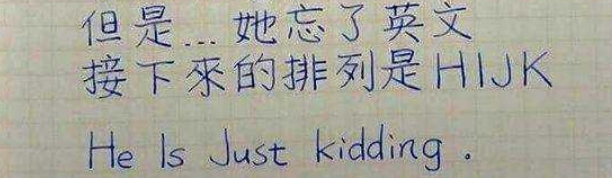 但是...她忘了英文
接下來的排列是HIJK
He Is Just kidding.